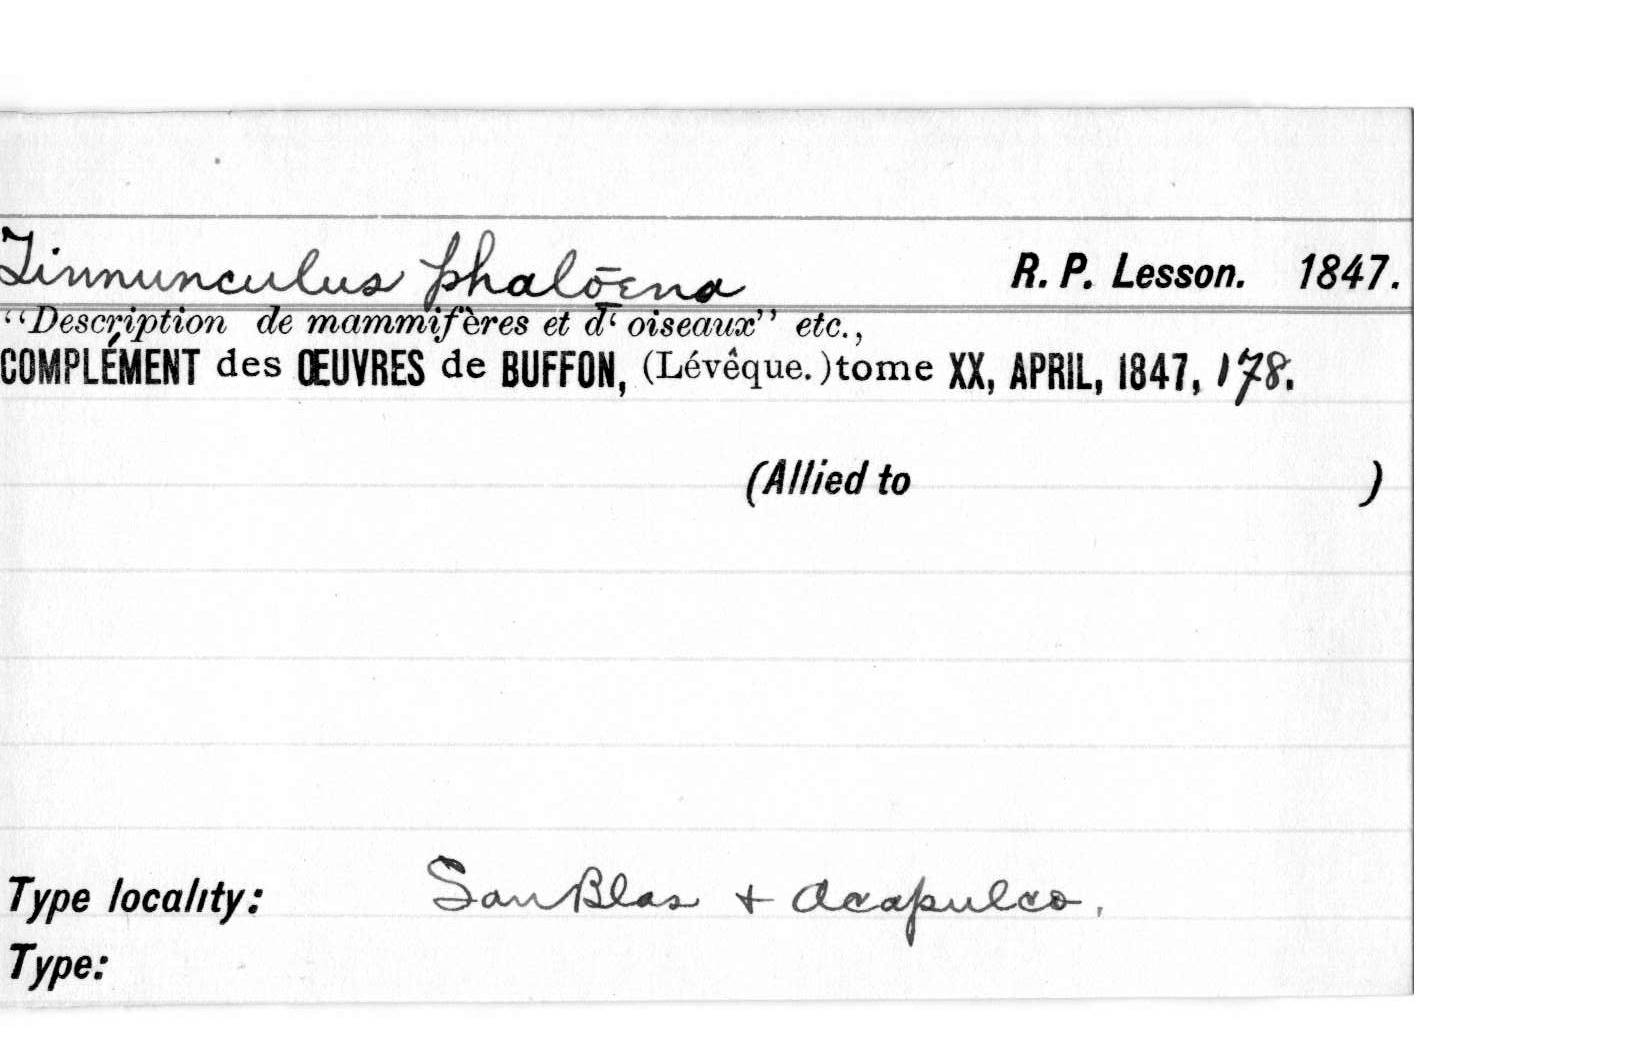 Tinnunculus phalœna R. P. Lesson. 1847.
“Description de mammifères et d‘ oiseaux” etc.,
COMPLÉMENT des ŒUVRES de BUFFON, (Lévêque.)tome XX, APRIL, 1847, 178.
(Allied to )
Type locality: San Blas + Acapulco.
Type: